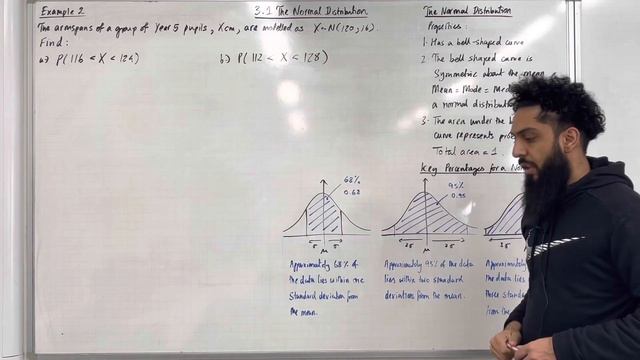 Example 2
The armspans of a group of Year 5 pupils, X cm, are modelled as X~N(120,16).
Find:
a) P(116 < X < 124)
b) P(112 < X < 128)
3.1 The Normal Distribution
The Normal Distribution
Properties:
1. Has a bell-shaped curve
2. The bell shaped curve is
Symmetric about the mean
Mean = Mode =
a normal
3. The area under the
curve represents
Total area = 1
Key Percentages for a
68%
0.68
σ σ
μ
Approximately 68% of
the data lies within one
Standard deviation from
the mean.
95%
0.95
2σ 2σ
μ
Approximately 95% of the data
lies within two standard
deviations from the mean.
3σ
the data lies
three
from the